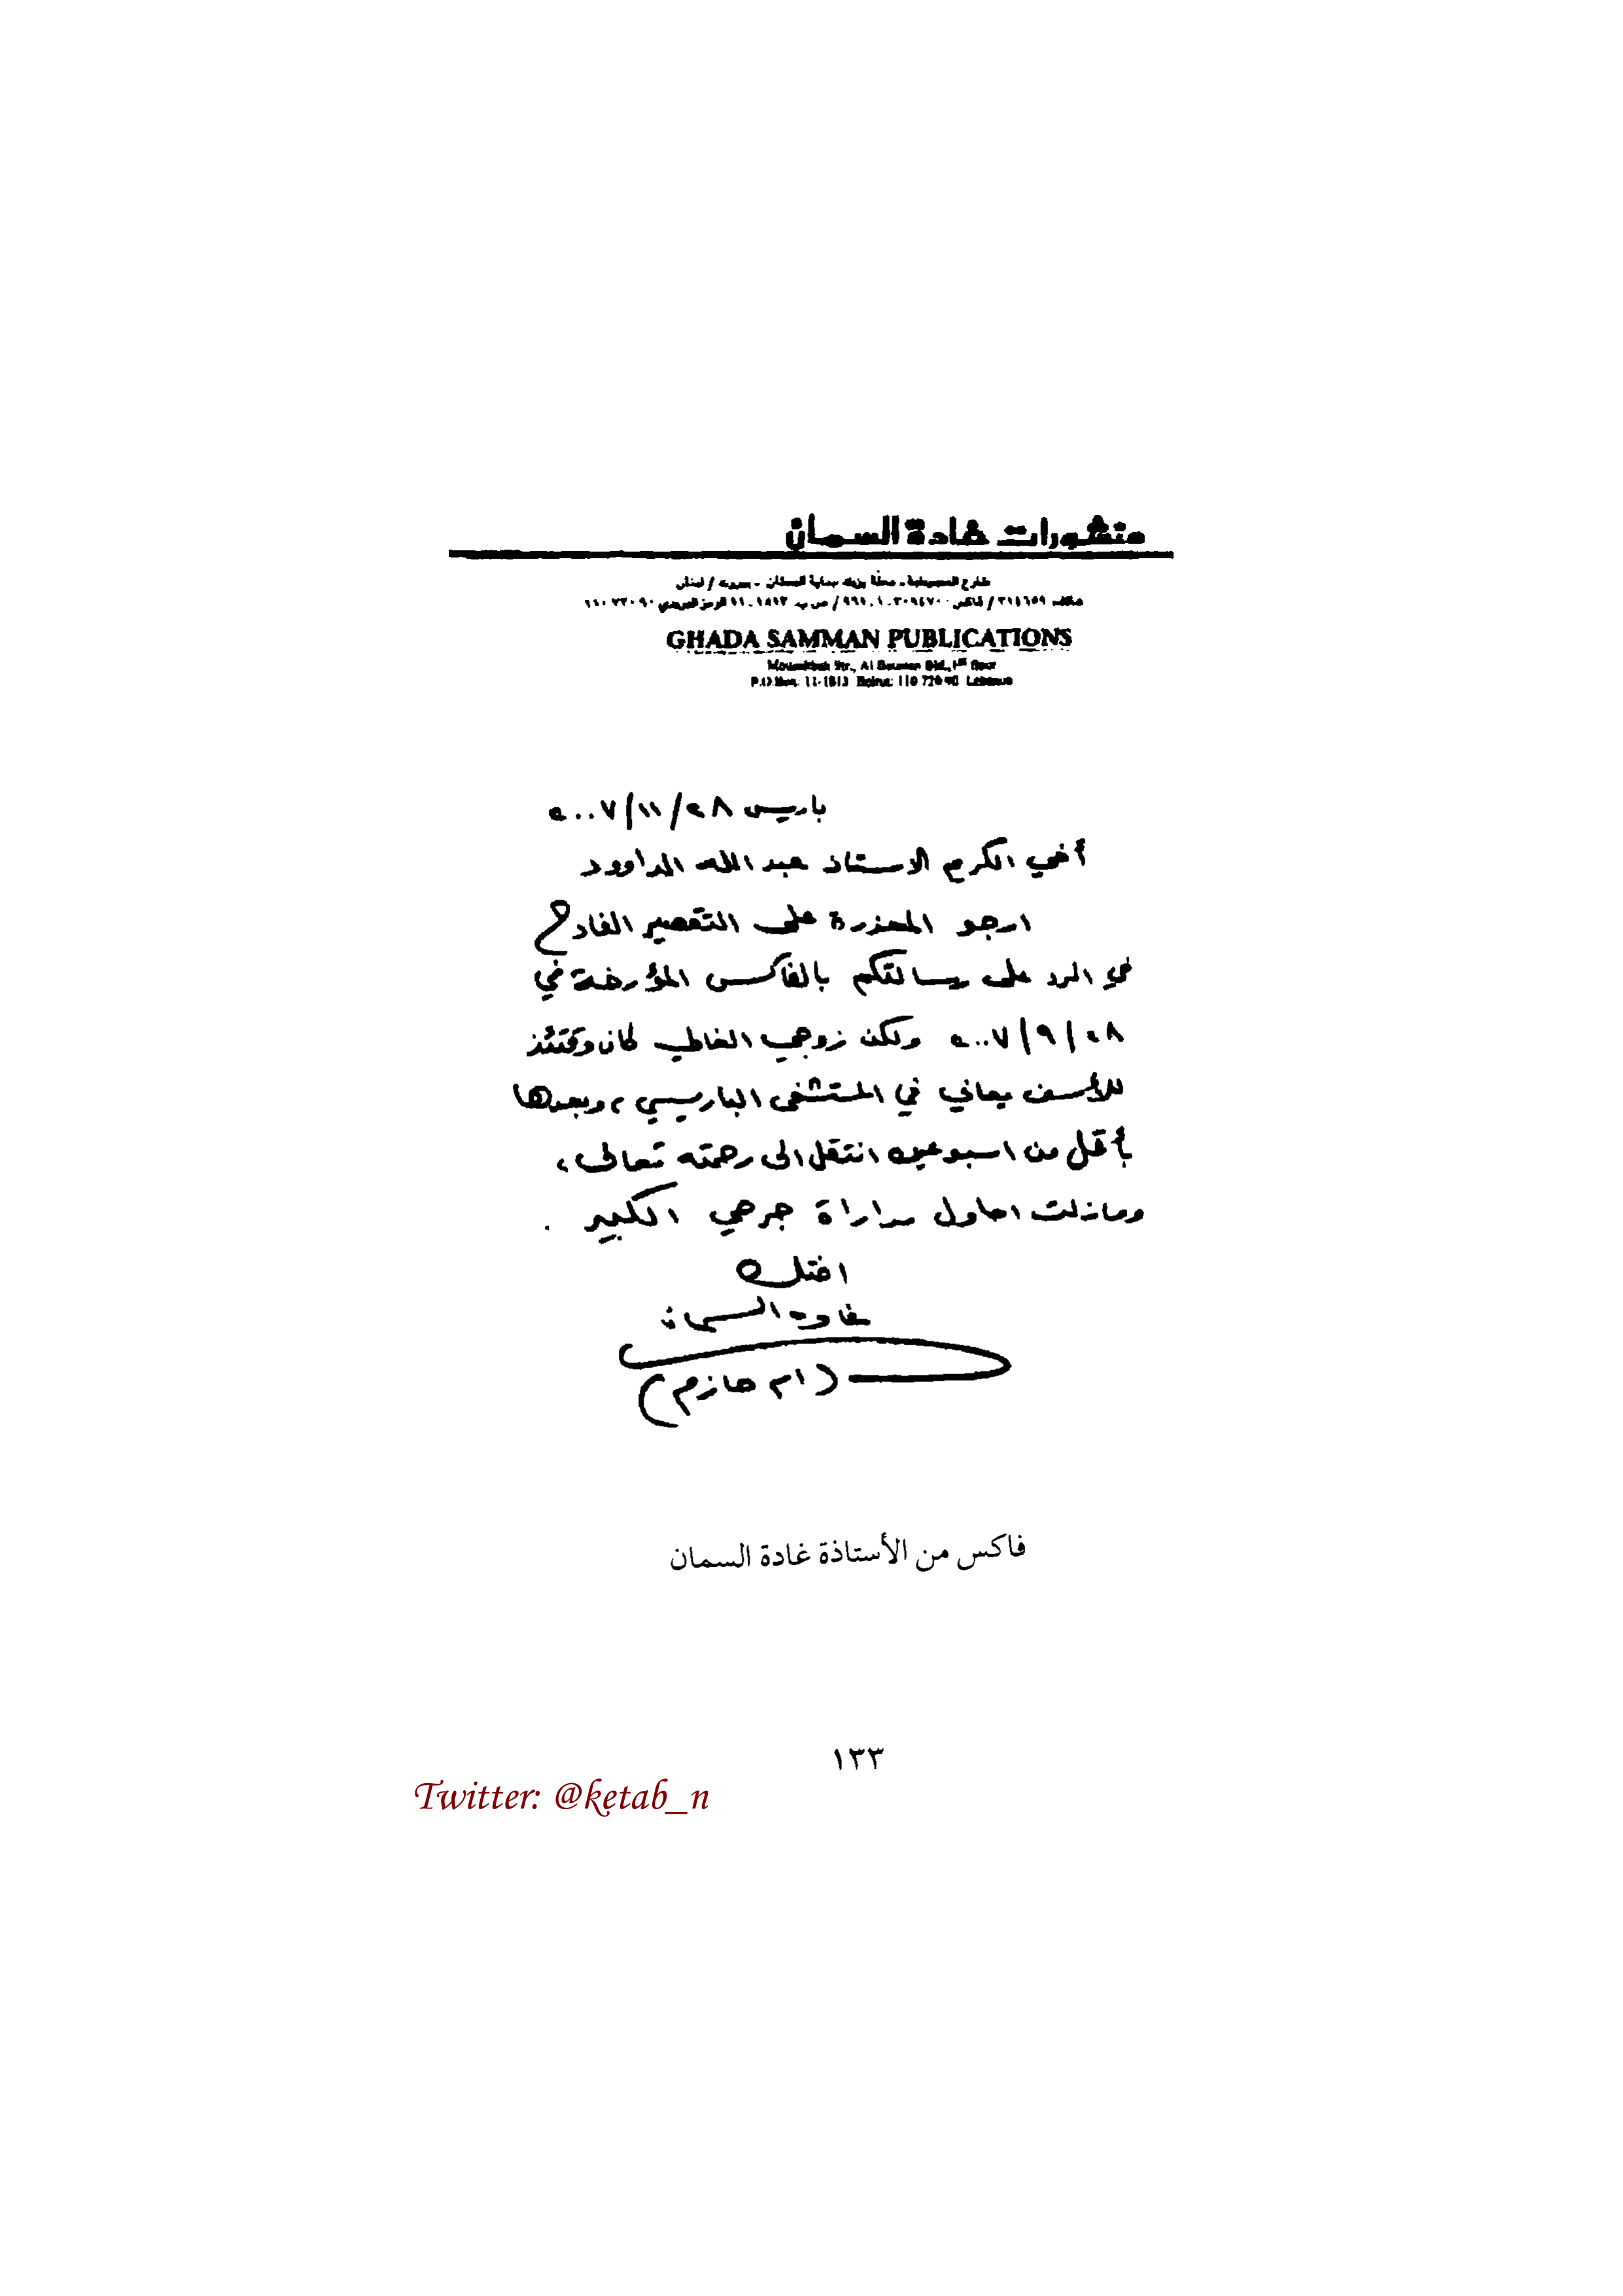 منشورات غادة السمان
شارع - بيروت / لبنان
هاتف ٣١٤٦٥٩ / فاكس / ص ب ١٨١٣-١١ الرمز البريدي
GHADA SAMMAN PUBLICATIONS
Str., Al Bld., 1st floor
P.O Box: 11-1813 Beirut: 110 720 90 Lebanon
باريس ٢٨/١١/٢٠٠٧
أخي الكريم الاستاذ عبد الله الداوود
ارجو المعذرة على التقصير الفادح
في الرد على رسالتكم بالفاكس المؤرخة في
٢٨/٩/٢٠٠٧ ولكن زوجي الغالي كان وقتئذ
للأسف يعاني في المستشفى الباريسي، وبعدها
بأقل من اسبوعين انتقل الى رحمته تعالى،
ومازلت احاول مداراة جرحي الكبير .
اختك
غادة السمان
(ام حازم)
فاكس من الأستاذة غادة السمان
١٣٣
Twitter: @ketab_n